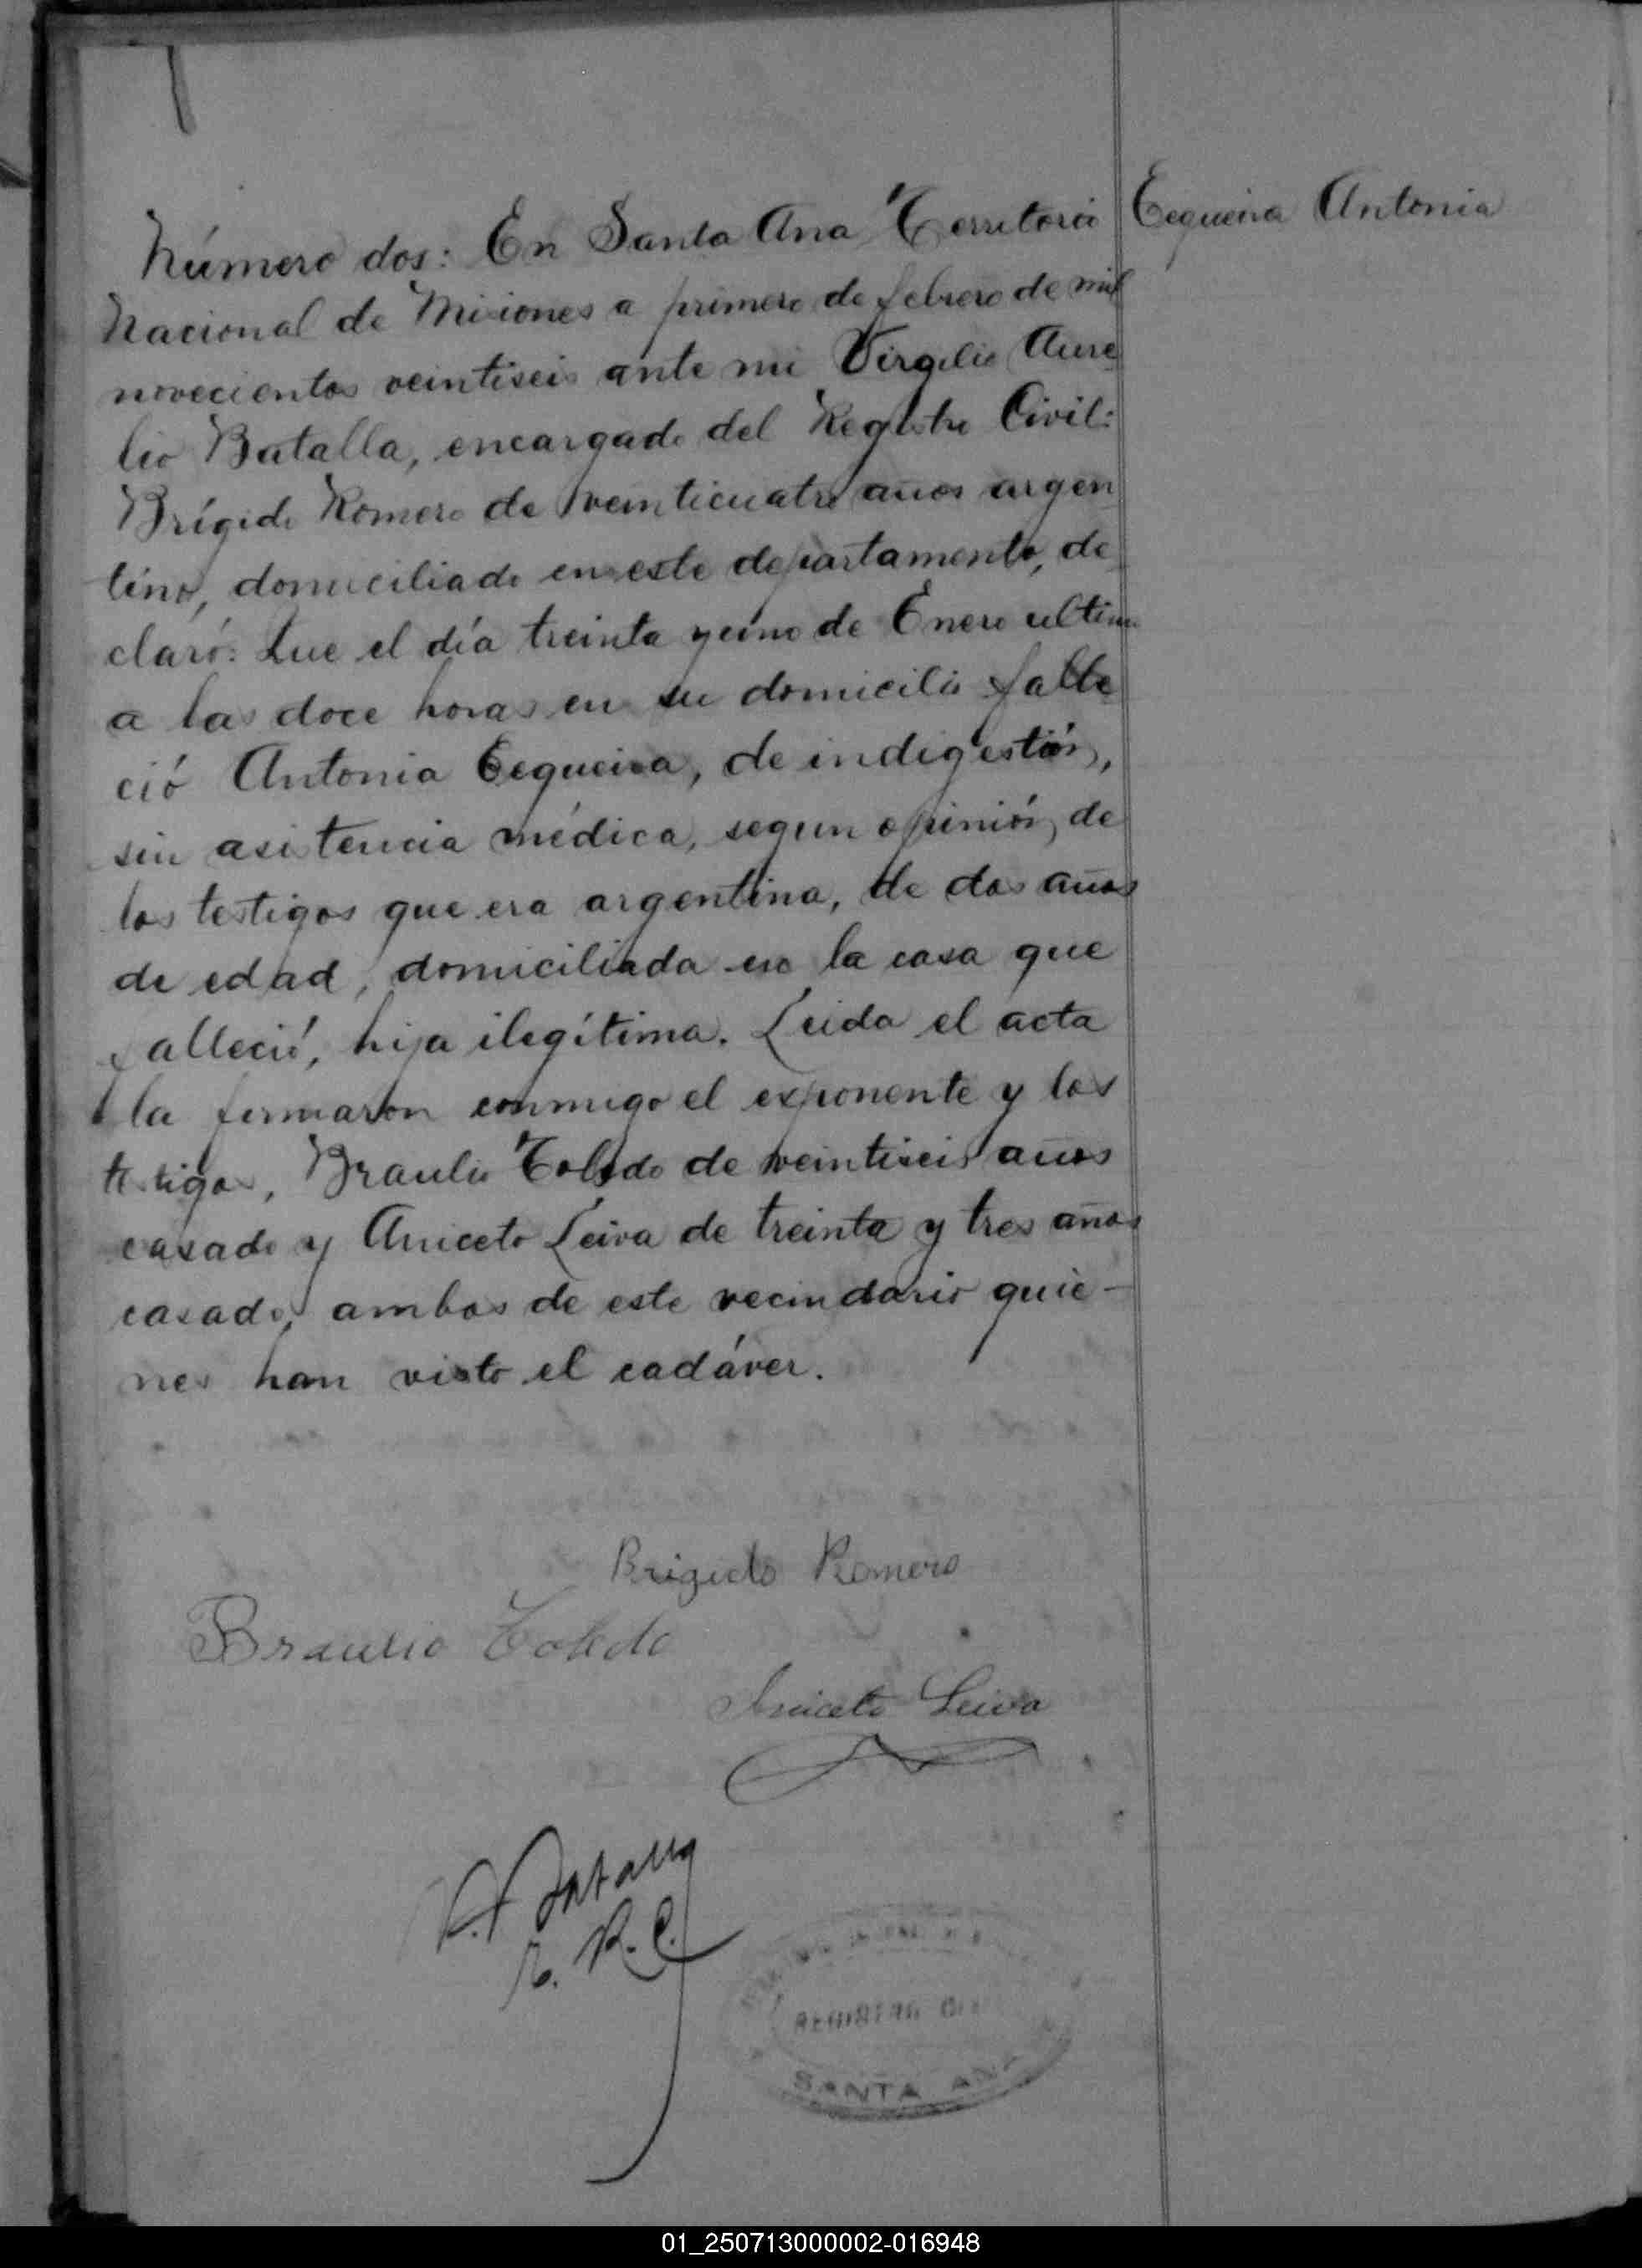 Número dos: En Santa Ana, Territorio
Eequeira Antonia
Nacional de Misiones a primero de febrero de mil
novecientos veintiseis ante mi Virgilio Aure
lio Batalla, encargado del Registro Civil:
Brígido Romero de veinticuatro años argen
tino, domiciliado en este departamento, de
claró: Que el día treinta y uno de Enero ultimo
a las doce horas en su domicilio falle
ció Antonia Eequeira, de indigestión,
sin asistencia médica, segun opinión de
los testigos que era argentina, de dos años
de edad, domiciliada en la casa que
falleció, hija ilegítima. Leida el acta
la firmaron conmigo el exponente y los
testigos, Braulio Toledo de veintiseis años
casado y Aniceto Leiva de treinta y tres años
casado, ambos de este vecindario quie-
nes han visto el cadáver.
Brigido Romero
Braulio Toledo
Aniceto Leiva
V. A. Batalla
E. R. C.
REGISTRO CIVIL
SANTA ANA
01_250713000002-016948